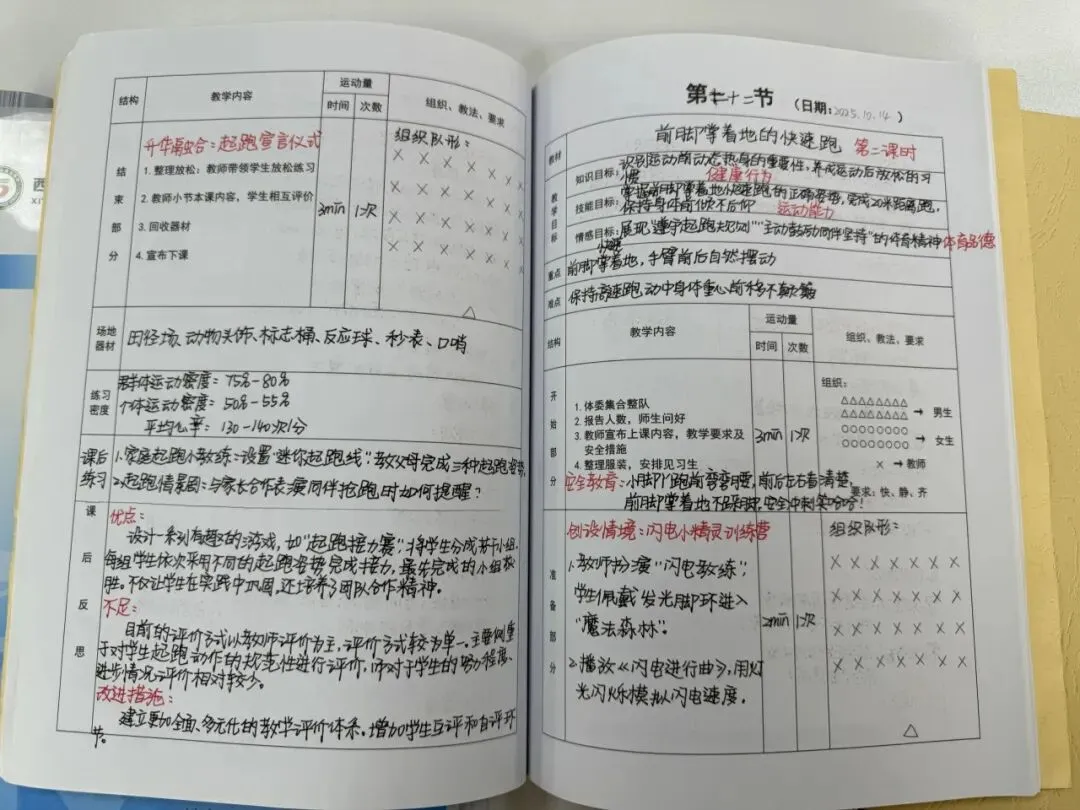 结构 教学内容 运动量 组织、教法、要求
时间 次数
结束部分
升华融合：起跑宣言仪式
1. 整理放松：教师带领学生放松练习
2. 教师小节本课内容，学生相互评价
3. 回收器材
4. 宣布下课
3min 1次
组织队形：
× × × × ×
× × × × ×
× × × × ×
× × × × ×
△
场地器材 田径场、动物头饰、标志桶、反应球、秒表、口哨
练习密度
群体运动密度：75%-80%
个体运动密度：50%-55%
平均心率：130-140次/分
课后练习
1.家庭起跑小教练：设置"迷你起跑线"，教父母完成三种起跑姿势，
2.起跑情景剧：与家长合作表演同伴抢跑时如何提醒？
课后反思
优点：
设计一系列有趣的游戏，如"起跑接力赛"，将学生分成若干小组，
每组学生依次采用不同的起跑姿势完成接力，最先完成的小组获
胜。不仅让学生在实践中巩固，还培养了团队合作精神。
不足：
目前的评价方式以教师评价为主，评价方式较为单一。主要侧重
于对学生起跑动作的规范性进行评价，而对于学生的努力程度、
进步情况评价相对较少。
改进措施：
建立更加全面、多元化的教学评价体系，增加学生互评和自评环
节。
第十二节 （日期：2025.10.14）
教材 前脚掌着地的快速跑 第二课时
教学目标
知识目标：识别运动前动态热身的重要性，养成运动后放松的习
惯 健康行为
技能目标：掌握前脚掌着地快速跑的正确姿势，完成20米距离跑，
保持身体前倾不后仰 运动能力
情感目标：展现"遵守起跑规则""主动鼓励同伴坚持"的体育精神 体育品德
重点 前脚掌着地，手臂前后自然摆动
难点 保持高速跑动中身体重心前移不
结构 教学内容 运动量 组织、教法，要求
时间 次数
开始部分
1. 体委集合整队
2. 报告人数，师生问好
3. 教师宣布上课内容，教学要求及
安全措施
4. 整理服装，安排见习生
3min 1次
组织：
△△△△△△△△
△△△△△△△△ → 男生
○○○○○○○○
○○○○○○○○ → 女生
× → 教师
要求：快、静、齐
安全教育：小脚丫跑前弯弯腰，前后左右看清楚，
前脚掌着地不踩脚，安全冲刺笑哈哈！
准备部分
创设情境：闪电小精灵训练营
1.教师扮演"闪电教练"，
学生佩戴发光脚环进入
"魔法森林"。
2.播放《闪电进行曲》，用灯
光闪烁模拟闪电速度。
2min 1次
组织队形：
× × × × × × ×
× × × × × × ×
× × × × × × ×
× × × × × × ×
△